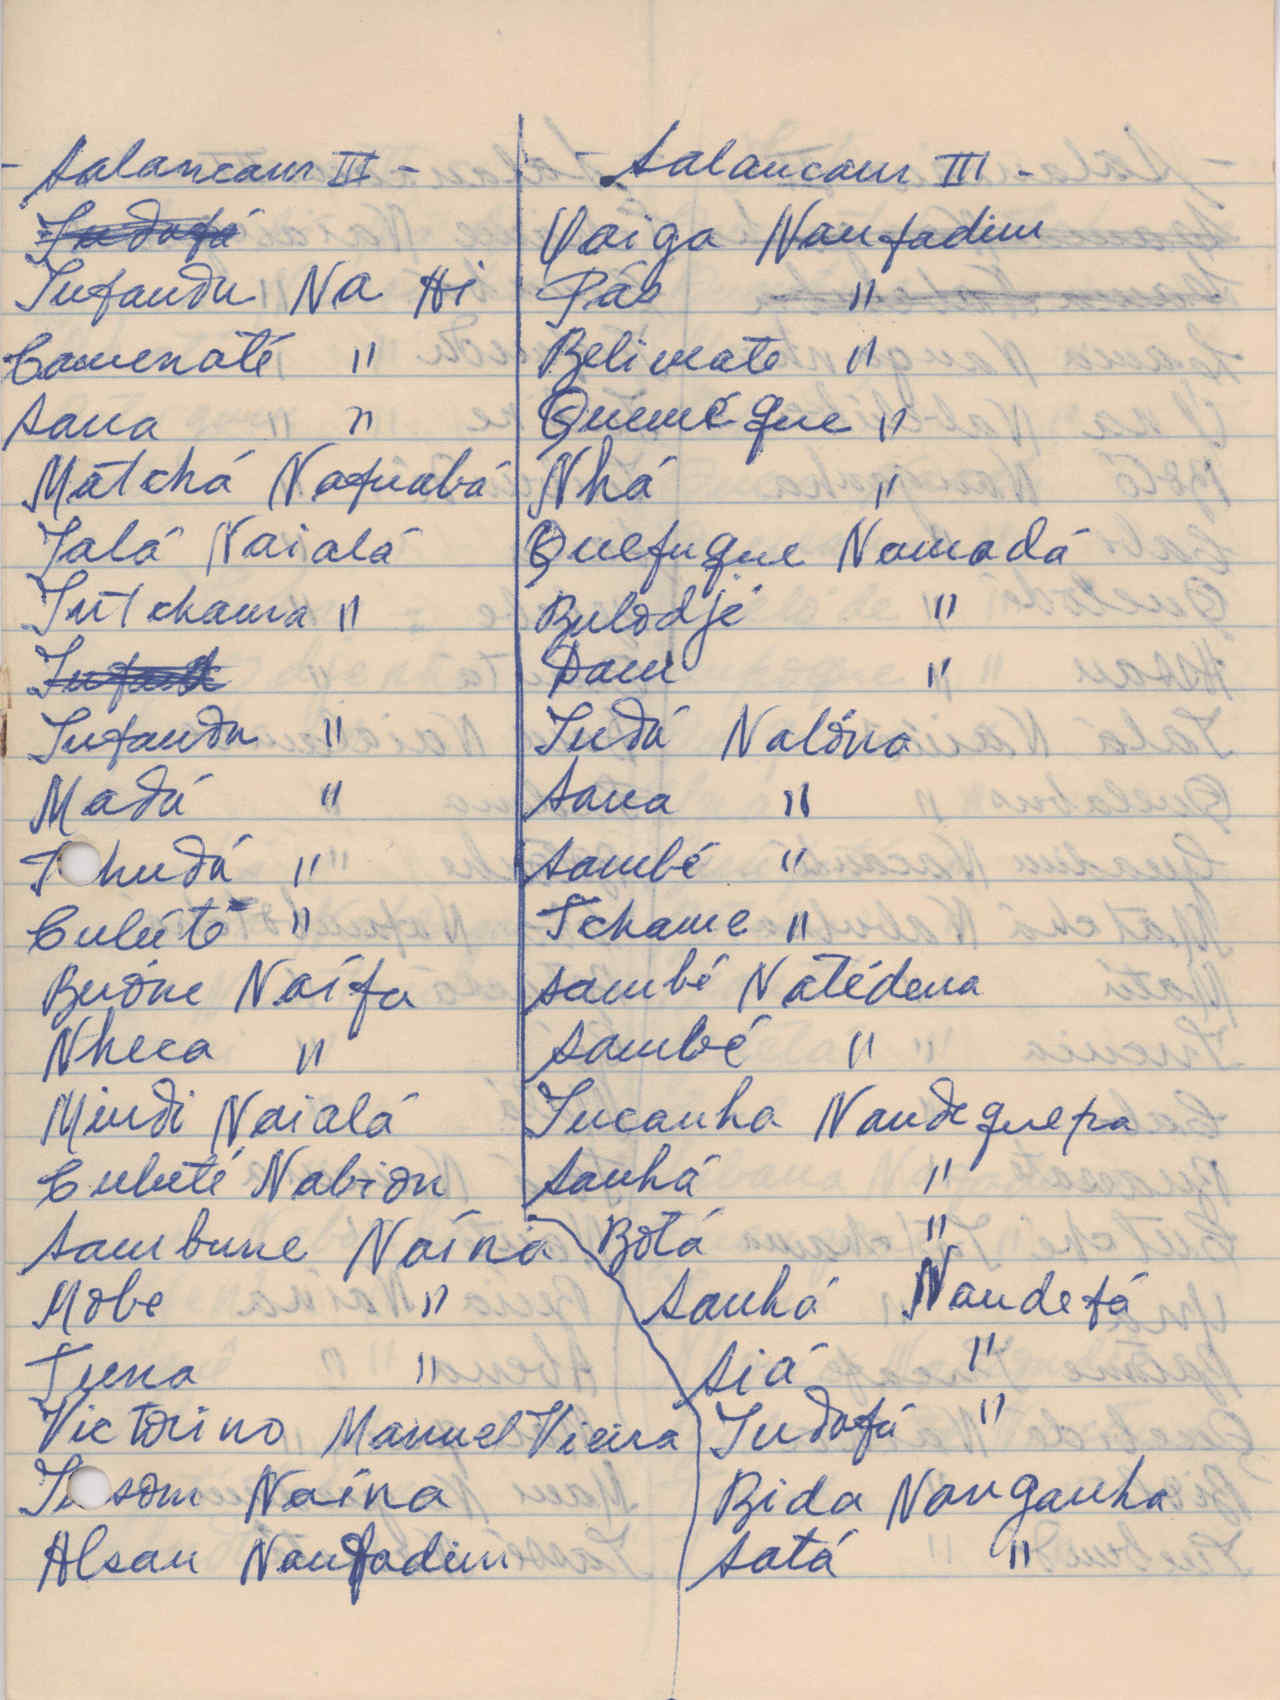 - Salancaur III -
Infandu Na Hi
Camenaté "
Sana "
Matchá Nafuabá
Jalá Naialá
Intchama "
Infandu "
Madú "
Tchudá "
Culuté "
Budne Naífa
Nheca "
Mindi Naialá
Cubuté Nabidn
Sambune Naína
Mobe "
Tuna "
Victorino Manuel Vieira
Insom Naína
Alsau Nanfadim
- Salancaur III -
Vaiga Nanfadim
Pás "
Belimate "
Quemé que "
Nhá "
Quefuque Namadá
Bulodjé "
Dam "
Indú Nalóna
Sana "
Sambé "
Tchame "
Sambé Natédena
Sambé "
Incanha Nandequepa
Sanhá "
Botá "
Sanhá Nandefá
Siá "
Indafá "
Bida Nanganha
Satá "